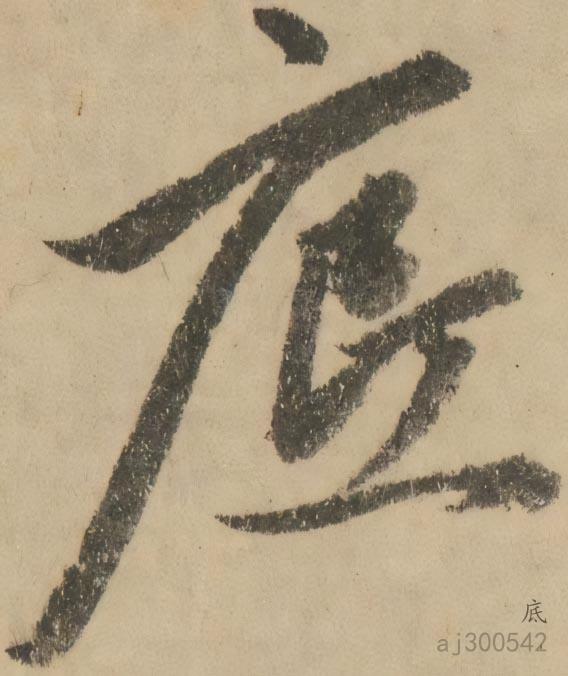 底
底
aj300542